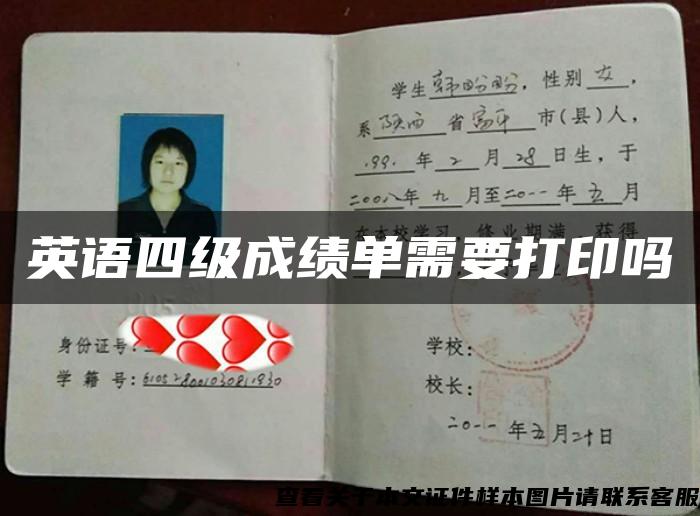 学生韩盼盼，性别女，
系陕西省富平市(县)人，
1991年2月28日生，于
二00八年九月至二0一一年五月
在本校学习，修业期满，获得
英语四级成绩单需要打印吗
身份证号:
学籍号:610528001030811930
学校:
校长:
二0一一年五月二十日
查看关于本文证件样本图片请联系客服